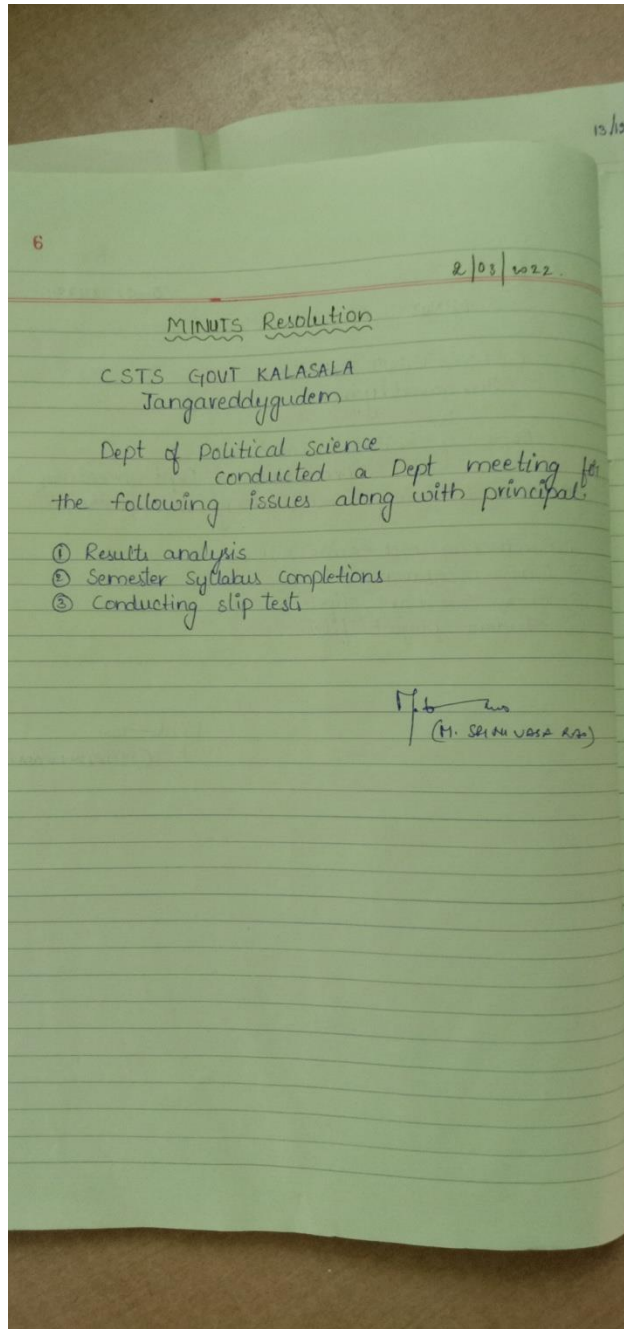 13/12
6
2/03/2022.
MINUTS Resolution
CSTS GOVT KALASALA
Jangareddygudem
Dept of Political Science
conducted a Dept meeting for
the following issues along with principal.
① Results analysis
② Semester Syllabus completions
③ Conducting slip tests
(M. SRINIVASA RAO)